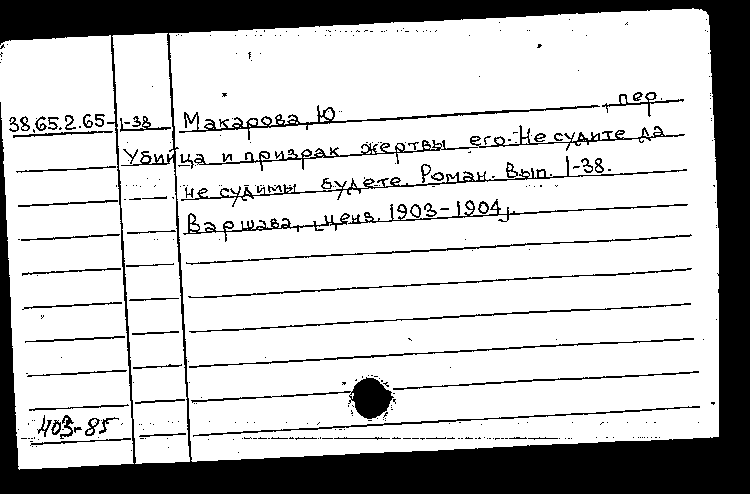 38.65.2.65-1-38 Макарова, Ю , пер.
Убийца и призрак жертвы его. Не судите да
не судимы будете. Роман. Вып. 1-38.
Варшава, [ценз. 1903-1904].
403-85